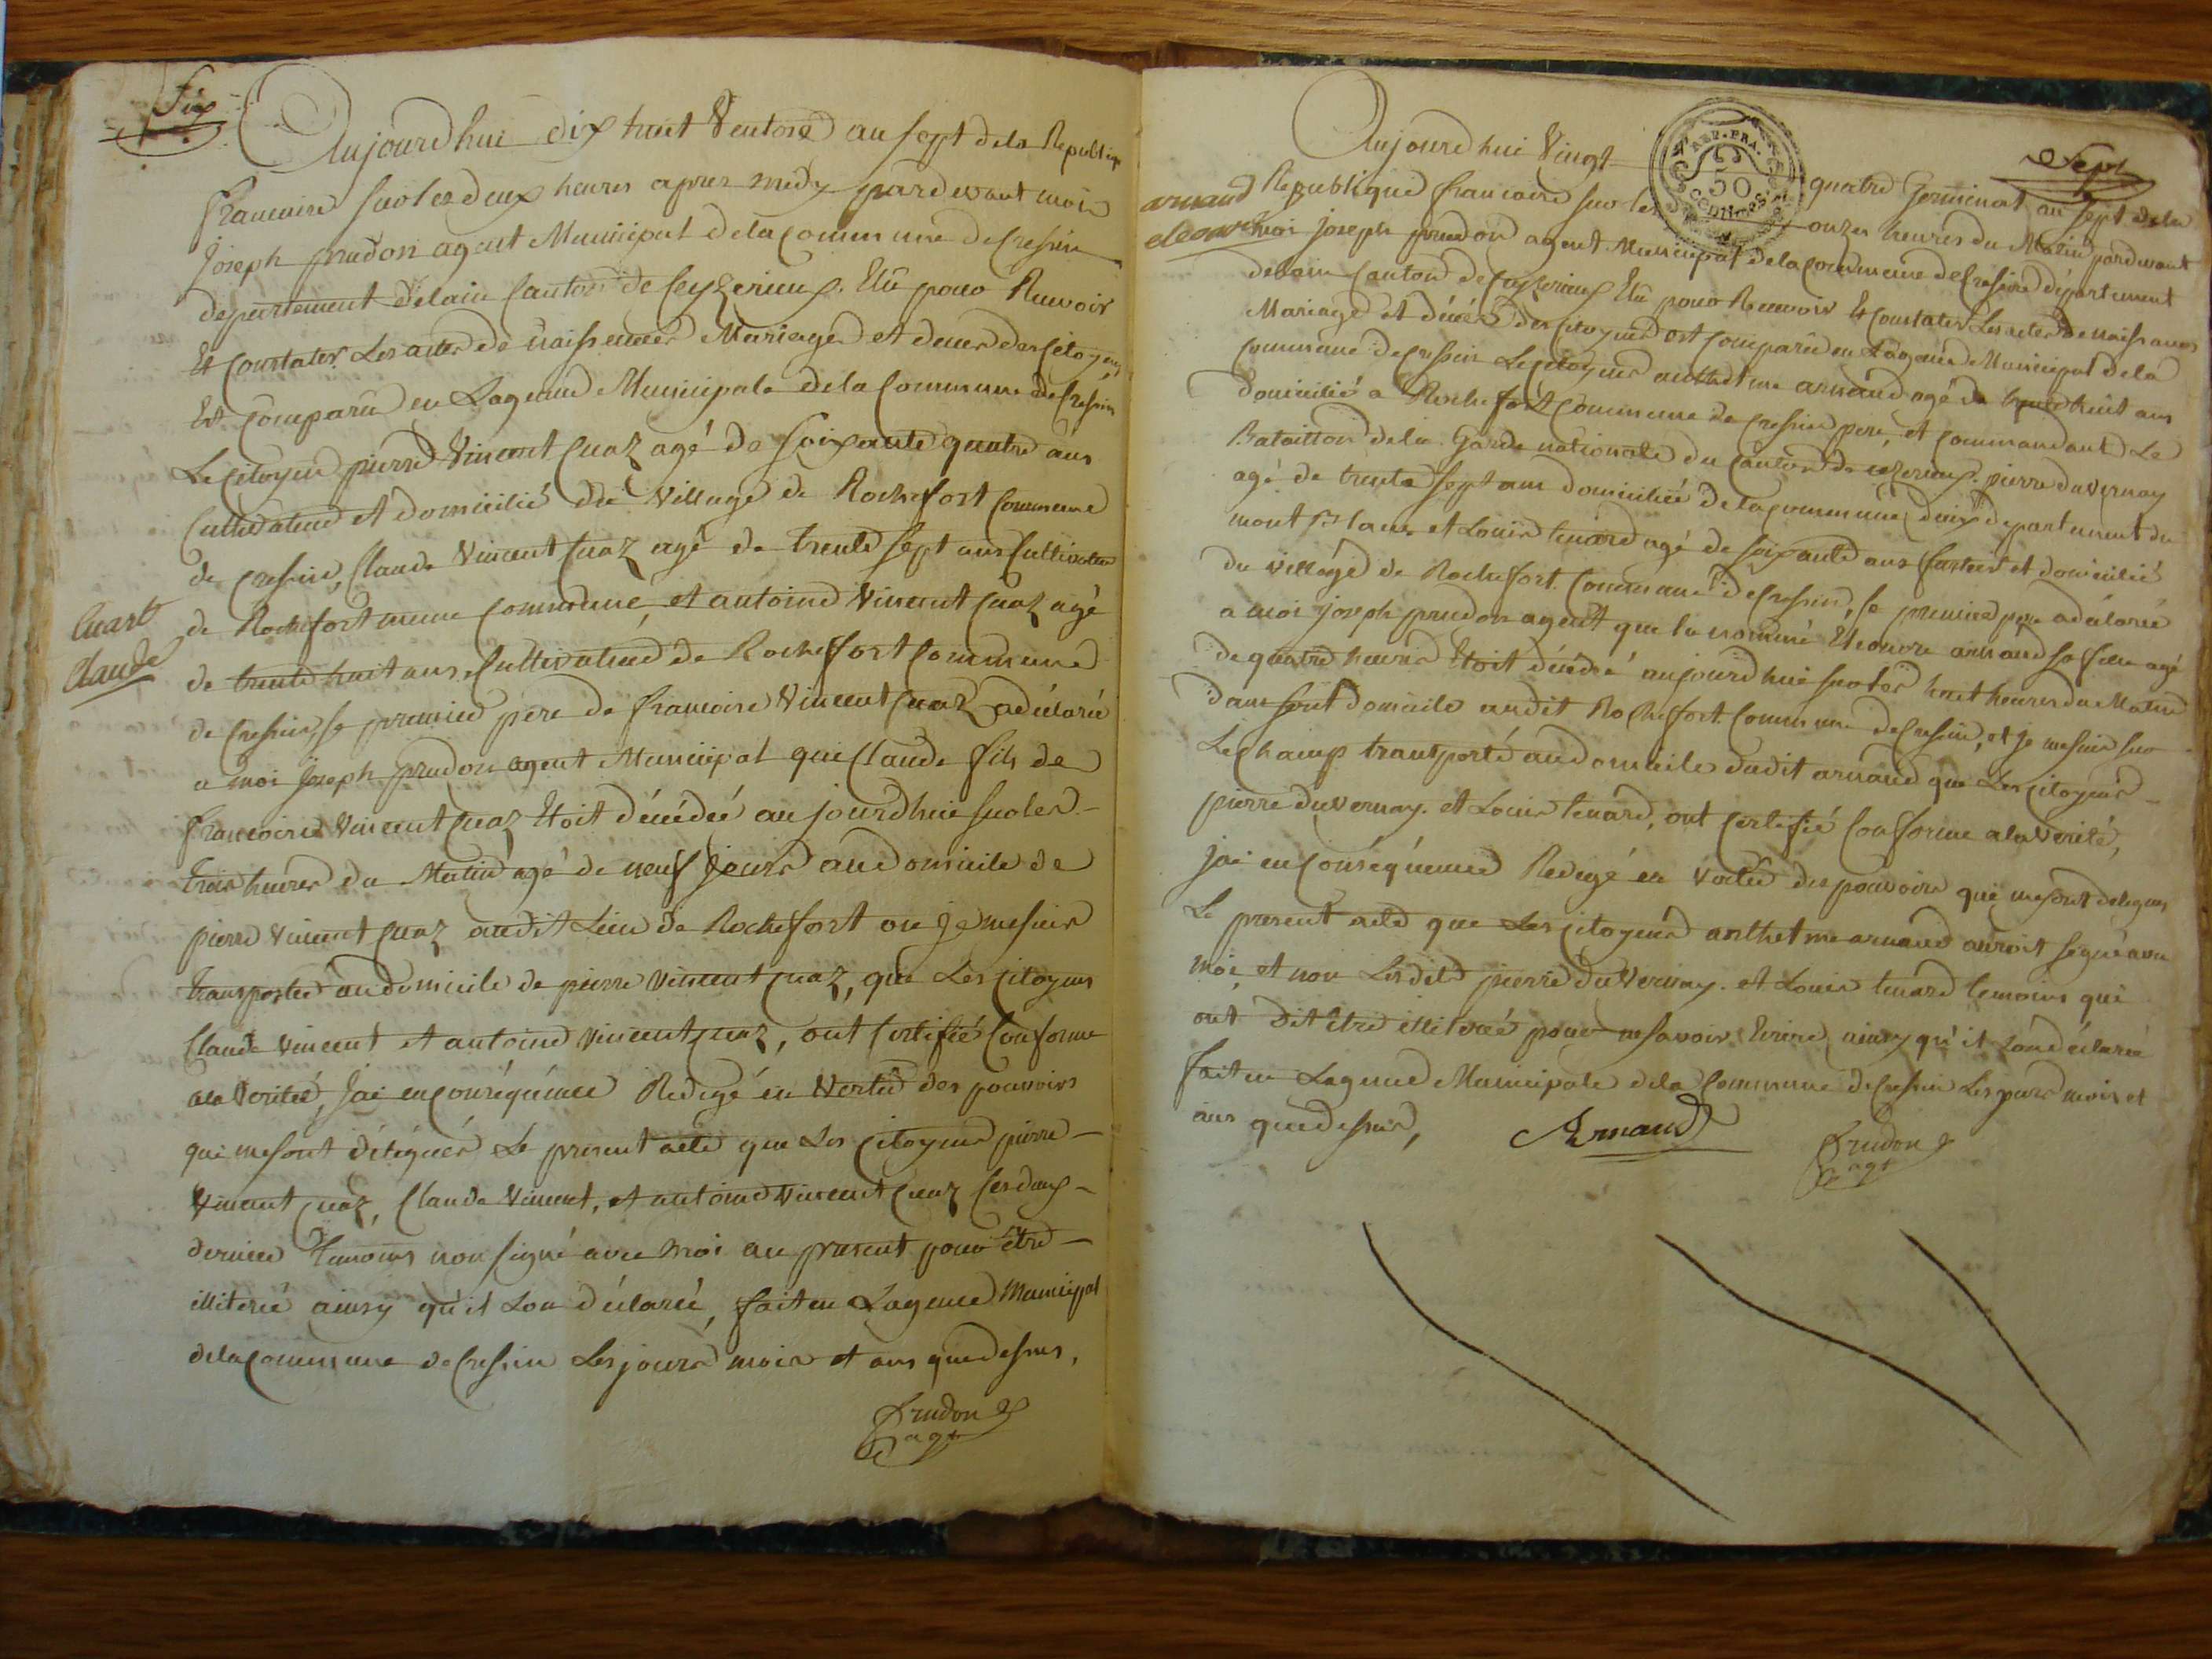 Six
Aujourdhui dix huit Ventose an sept dela Republique
francaise sur les deux heures apres medy pardevant moi
Joseph prudon agent Municipal dela Commune de Cressin
departement delain Canton de Ceyzerieux. Elû pour Recevoir
Et Constater Les actes de naissances Mariages et deces des Citoyens
Est Comparû en Lagence Municipale dela Commune de Cressin
Le Citoyen pierre Vincent Cuaz agé de soixante quatre ans
Cultivateur et domicilié du village de Rochefort Commune
de Cressin, Claude Vincent Cuaz agé de trente sept ans Cultivateur
Cuast
Claude
de Rochefort meme commune, et antoine Vincent Cuaz agé
de trente huit ans, Cultivateur de Rochefort Commune
de Cressin, le premier pere de francoise Vincent Cuaz a déclaré
a moi Joseph prudon agent Municipal que Claude fils de
francoise Vincent Cuaz Etoit décédée aujourdhui sur les
trois heures du Matin agé de neuf jours au domicile de
pierre Vincent Cuaz audit Lieu de Rochefort ou je me suis
transportée au domicile de pierre Vincent Cuaz, que Les Citoyens
Claude Vincent et antoine Vincent Cuaz, ont Certifiée Conforme
ala Veritée, Jai en conséquence Redigé en Vertu des pouvoirs
qui me sont délégués Le present acte que Les Citoyens pierre
Vincent Cuaz, Claude Vincent, et antoine Vincent Cuaz Ces deux
dernier Temoins non signé avec moi au present pour être
illiteré ainsy qu'il Lon déclarée, fait en Lagence Municipal
dela Commune de Cressin Les jours mois et ans que dessus,
Prudon
agt
Sept
Aujourdhui Vingt quatre Germinal an sept dela
REP. FRA.
50
CENTIMES
arnaud
eleonore
Republique francaise sur les onzes heures du Matin pardevant
moi Joseph prudon agent Municipal dela Commune de Cressin département
delain Canton de Ceyzerieux Elû pour Recevoir Et Constater Les actes de naissances
Mariage et décés des Citoyens est Comparû en Lagence Municipal dela
Commune de Cressin Le Citoyen anthelme arnaud agé de trente huit ans
domicilié a Rochefort Commune de Cressin pere, et Commandant Le
Bataillon dela Garde nationale du Canton de ceyzerieux. pierre duvernay
agé de trente sept ans domiciliée dela commune departement du
mont Blanc et Louis tenard agé de soixante ans et domicilié
du village de Rochefort Commune de Cressin, le premier pere a déclarée
a moi Joseph prudon agent que la nommé Eleonore arnaud sa fille agé
de quatre heures Etoit décédée aujourdhui sur les huit heures du Matin
dans sont domicile audit Rochefort Commune de Cressin, et je me suis sur
Le champ transporté au domicile dudit arnaud que Les Citoyens
pierre duvernay. et Louis tenard, ont Certifié Conforme ala Verité,
Jai en conséquence Redigé en Vertu des pouvoirs qui me sont delegues
Le present acte que Les Citoyens anthelme arnaud auroit signé avec
moi, et non Lesdits pierre duvernay. et Louis tenard temoins qui
ont dit être illiteré pour ne savoir Ecrire, ainsy qu'il Lon déclarée
fait en Lagence Municipale dela Commune de Cressin Les jours mois et
ans que dessus,
Arnaud
Prudon
agt